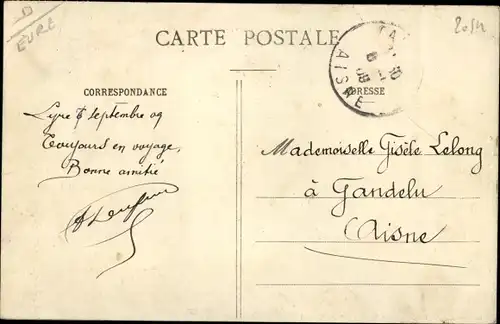 EURE
CARTE POSTALE
AISNE
CORRESPONDANCE
ADRESSE
Lyre 6 septembre 09
Toujours en voyage,
Bonne amitié
Mademoiselle Gisèle Lelong
à Gandelu
Aisne